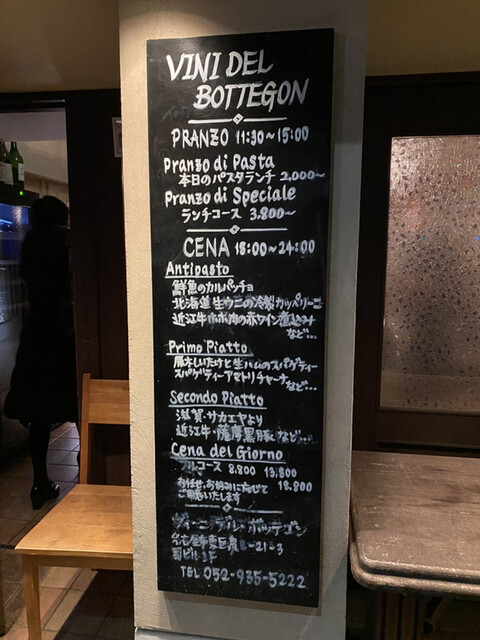 VINI DEL
BOTTEGON
PRANZO 11:30～15:00
Pranzo di Pasta
本日のパスタランチ 2,000～
Pranzo di Speciale
ランチコース 3,800～
CENA 18:00～24:00
Antipasto
鮮魚のカルパッチョ
北海道生ウニの冷製カッペリーニ
近江牛ホホ肉の赤ワイン煮込み
など...
Primo Piatto
原木しいたけと生ハムのスパゲティー
スパゲティーアマトリチャーナなど...
Secondo Piatto
滋賀・サカエヤより
近江牛・薩摩黒豚など...
Cena del Giorno
フルコース 8,800 13,800
18,800
おまかせ、お好みに応じて
ご用意いたします
ヴィーニ・デル・ボッテゴン
名古屋市東区泉
ビル1F
TEL 052-935-5222